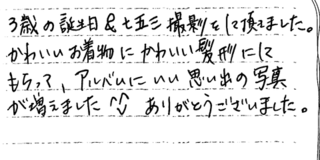 3歳の誕生日&七五三撮影をして頂きました。
かわいいお着物にかわいい髪形にして
もらって、アルバムにいい思い出の写真
が増えました^^ ありがとうございました。